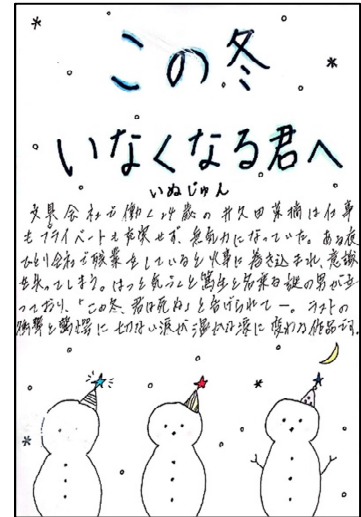 この冬
いなくなる君へ
いぬじゅん
文具会社で働く24歳の井久田菜摘は仕事
もプライベートも充実せず、無気力になっていた。ある夜
ひとり会社で残業をしていると火事に巻き込まれ、意識
を失ってしまう。はっと気づくと篤生と名乗る謎の男が立
っており、「この冬、君は死ぬ」と告げられて―。ラストの
衝撃と驚愕に切ない涙が温かな涙に変わる作品です。